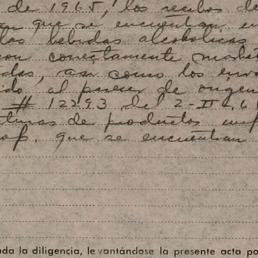 de 1965, los recibos de
que se encuentran en
las bebidas alcoholicas
con correctamente
das, asi como los
do al parecer de origen
# 12293 del 2-II-66
turas de productos
que se encuentran
ada la diligencia, levantándose la presente acta po